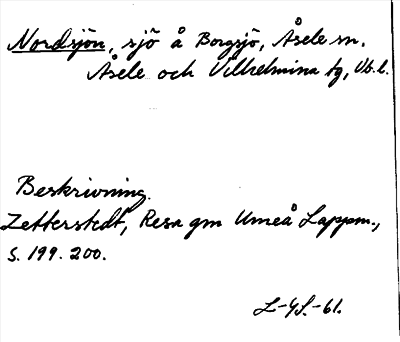 Nordsjön, sjö å Borgsjö, Åsele sn.
Åsele och Vilhelmina tg, Vb. l.
Beskrivning.
Zetterstedt, Resa gm Umeå Lappm.,
s. 199. 200.
L-YS.-61.